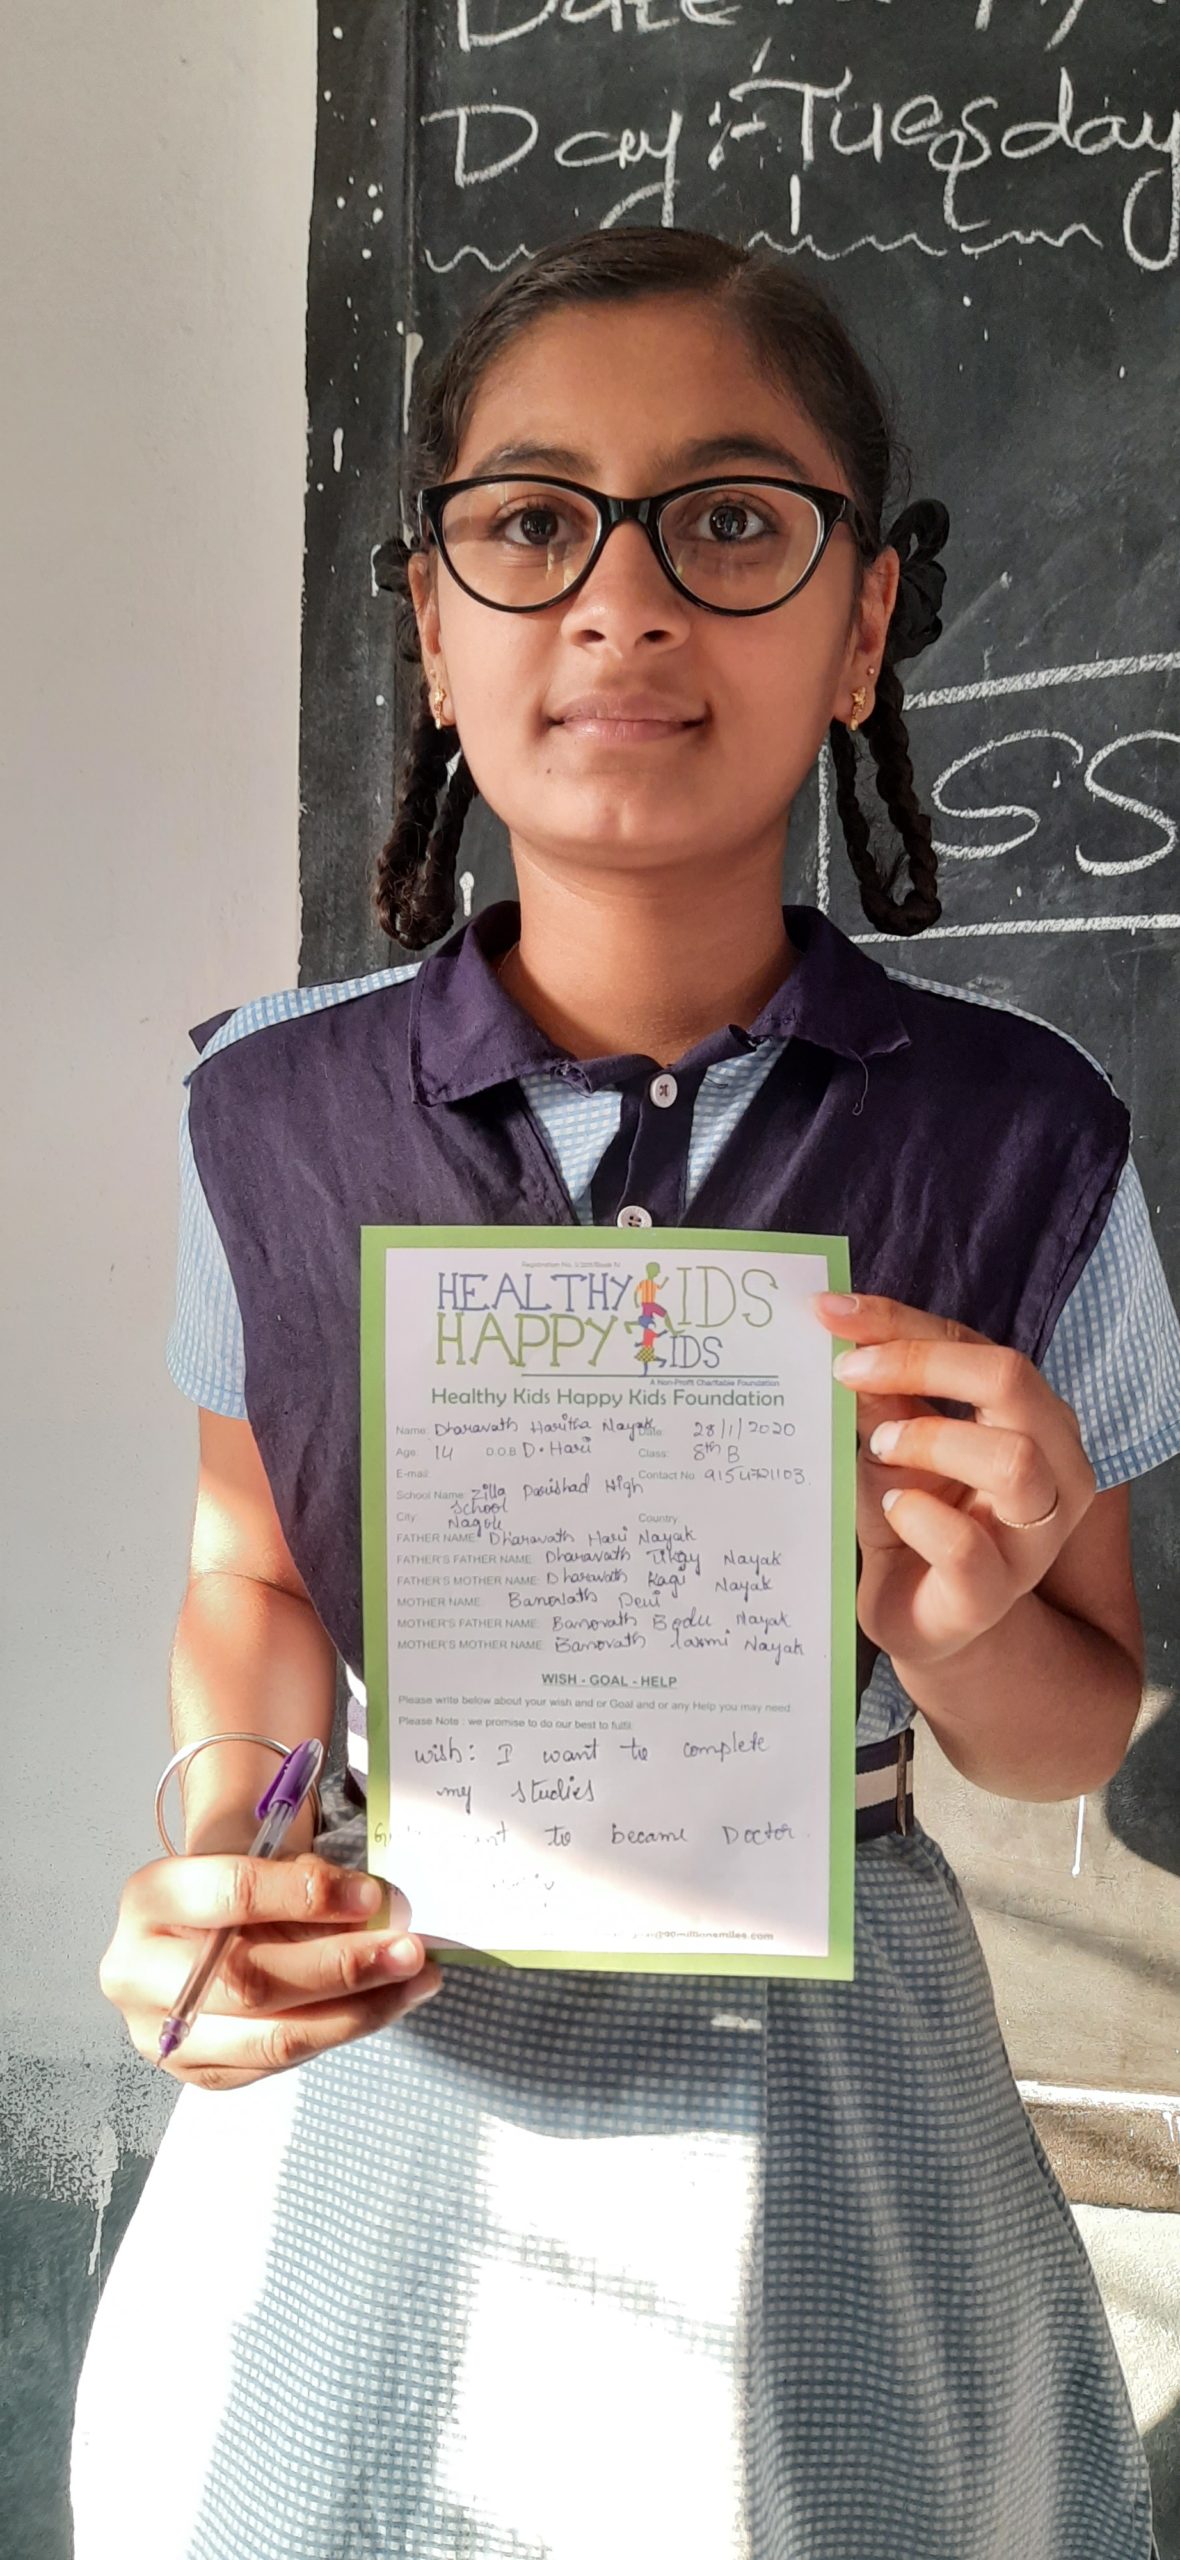 Day :- Tuesday
SS
HEALTHY KIDS
HAPPY KIDS
A Non-Profit Charitable Foundation
Healthy Kids Happy Kids Foundation
Name: Dharavath Haritha Nayak Date: 28/1/2020
Age: 14 D.O.B D. Hari Class: 8th B
E-mail: Contact No. 9154721103.
School Name: Zilla Parishad High
School
City: Nagole Country:
FATHER NAME: Dharavath Hari Nayak
FATHER'S FATHER NAME: Dharavath Nayak
FATHER'S MOTHER NAME: Dharavath Kagi Nayak
MOTHER NAME: Banovath Devi
MOTHER'S FATHER NAME: Banovath Nayak
MOTHER'S MOTHER NAME: Banovath laxmi Nayak
WISH - GOAL - HELP
Please write below about your wish and or Goal and or any Help you may need.
Please Note : we promise to do our best to fulfil.
wish: I want to complete
my studies
to became Doctor.